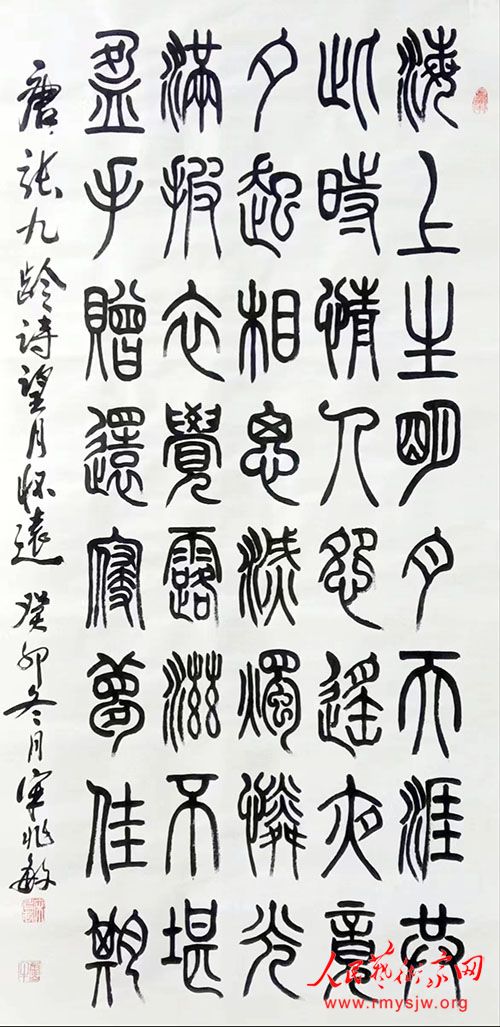 海上生明月天涯共
此時情人怨遙夜竟
夕起相思滅燭憐光
滿披衣覺露滋不堪
盈手贈還寢夢佳期
唐張九齡詩望月怀遠 癸卯冬月
人民藝術家网
www.rmysjw.org